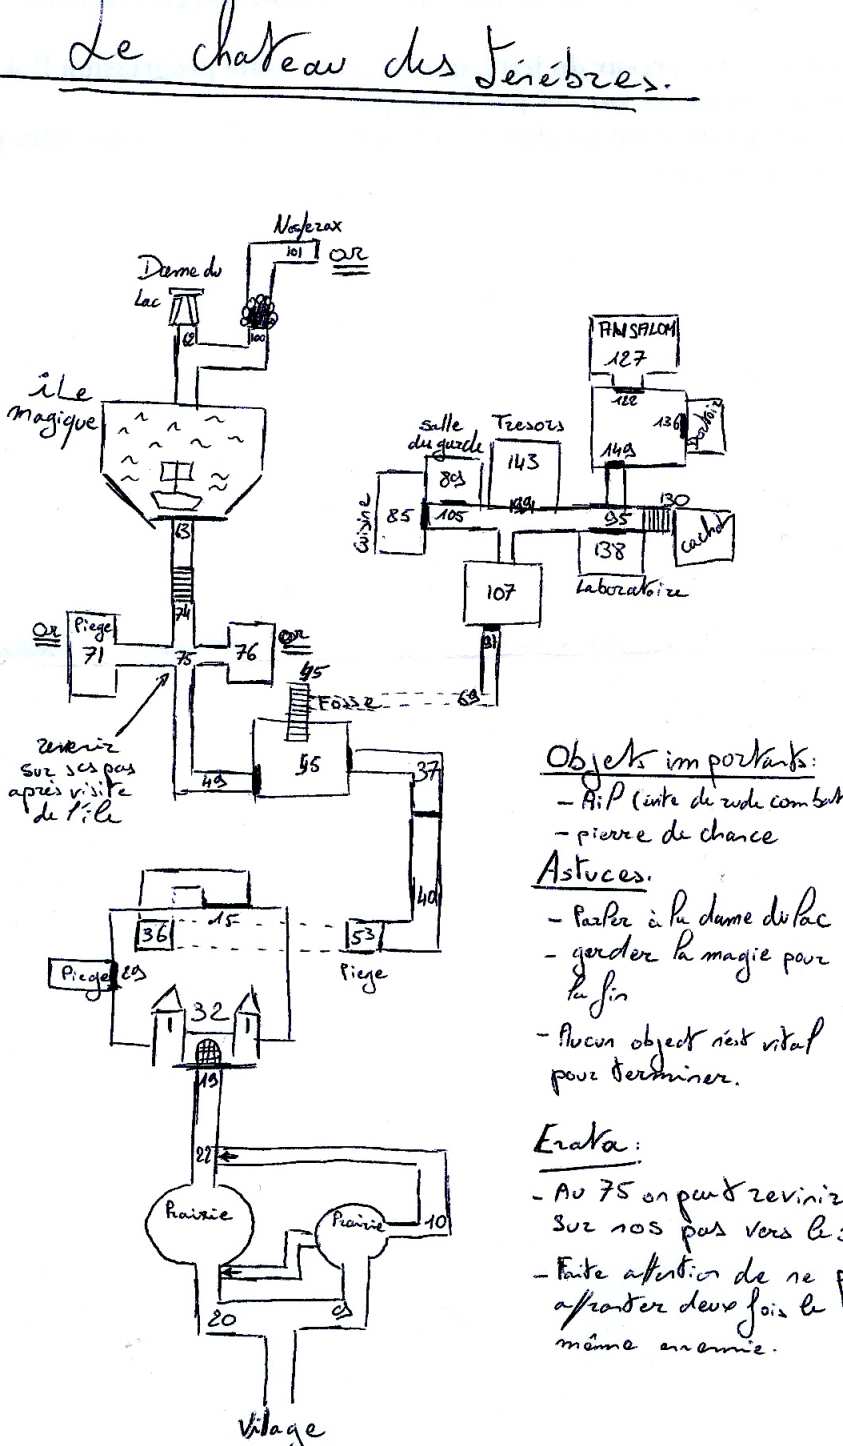 Le chateau des ténébres.
Nosferax
101
OR
Dame du
Lac
62
100
île
magique
63
74
OR
Piege
71
75
76
OR
revenir
sur ses pas
après visite
de l'île
49
45
Fosse
69
45
37
40
ANSALOM
127
122
136
Dortoir
149
Salle
du garde
89
Tresors
143
144
Cuisine
85
105
95
130
cachot
138
Laboratoire
107
97
15
36
53
Piege
Piege
29
32
19
22
Prairie
Prairie
10
20
9
Vilage
Objets importants:
- Ail (évite de rude combat
- pierre de chance
Astuces.
- Parler à la dame du lac
- garder la magie pour
la fin
- Aucun object n'est vital
pour terminer.
Erata:
- Au 75 on peut revinir
sur nos pas vers le
- Faite attention de ne
affronter deux fois le
même ennemie.